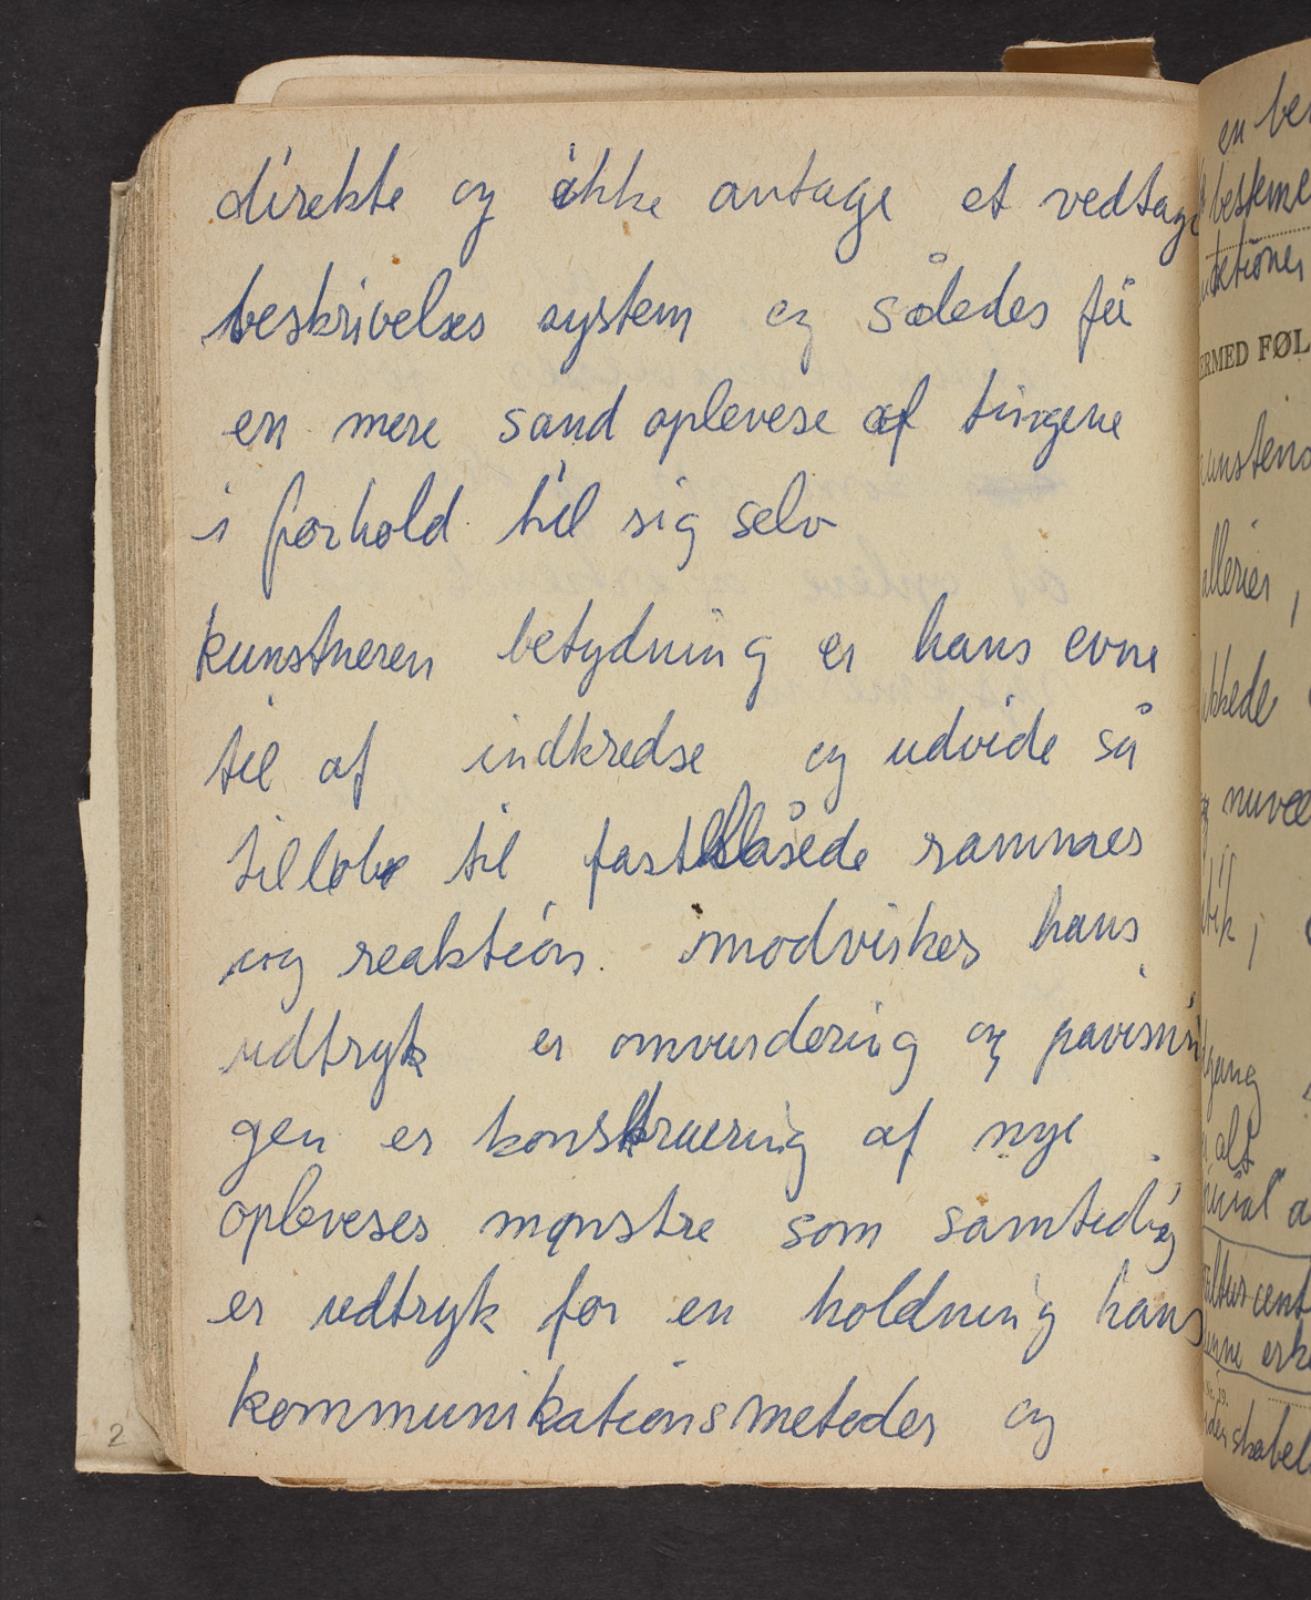 direkte og ikke antage et vedtage
beskrivelses system og således få
en mere sand oplevese af tingene
i forhold til sig selv
kunstneren betydning er hans evne
til af indkredse og udvide så
tilløbe til fastlåsede rammes
og reaktion. modvirker hans
udtryk er omvurdering og pavisnin
gen er konstruering af nye
opleveses mønstre som samtidig
er udtryk for en holdning hans
kommunikationsmetoder og
2
en be
besteme
ktioner
ERMED FØL
unstens
allerier,
kkede
nuvæ
tik,
gang
alt
ultur cent
enne erk
skabel